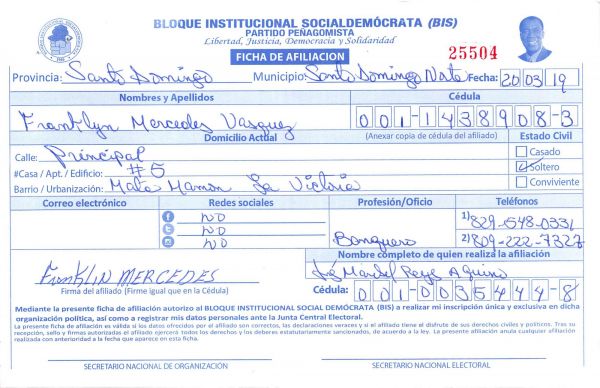 BLOQUE INSTITUCIONAL SOCIALDEMÓCRATA (BIS)
PARTIDO PEÑAGOMISTA
Libertad, Justicia, Democracia y Solidaridad
FICHA DE AFILIACION
25504
Provincia: Santo Domingo Municipio: Santo Domingo Note Fecha: 20 03 19
Nombres y Apellidos Cédula
Franklyn Mercedes Vasquez 001-1438908-3
Domicilio Actual (Anexar copia de cédula del afiliado) Estado Civil
Calle: Principal Casado
#Casa / Apt. / Edificio: #5 Soltero
Barrio / Urbanización: Mata Mamon La Victoria Conviviente
Correo electrónico Redes sociales Profesión/Oficio Teléfonos
NO 1) 829-548-0331
NO Banquero 2) 809-222-7327
NO
Nombre completo de quien realiza la afiliación
FranklIN MERCEDES
Firma del afiliado (Firme igual que en la Cédula)
Cédula: 001-0035444-8
Mediante la presente ficha de afiliación autorizo al BLOQUE INSTITUCIONAL SOCIAL DEMÓCRATA (BIS) a realizar mi inscripción única y exclusiva en dicha
organización política, así como a registrar mis datos personales ante la Junta Central Electoral.
La presente ficha de afiliación es válida si los datos ofrecidos por el afiliado son correctos, las declaraciones veraces y si el afiliado tiene el disfrute de sus derechos civiles y políticos. Tras su
recepción, sello y firmas autorizadas el afiliado ejercerá todos los derechos y los deberes estatutariamente sancionados, de acuerdo a la ley. La presente afiliación anula cualquier afiliación
realizada con anterioridad a la fecha que aparece en esta ficha.
SECRETARIO NACIONAL DE ORGANIZACIÓN SECRETARIO NACIONAL ELECTORAL